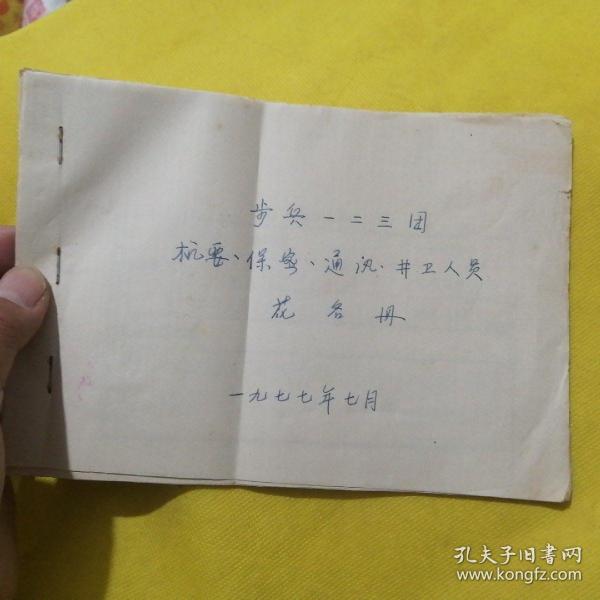 步兵一二三团
机要、保密、通讯、井卫人员
花名册
一九七七年七月
孔夫子旧書网
www.kongfz.com